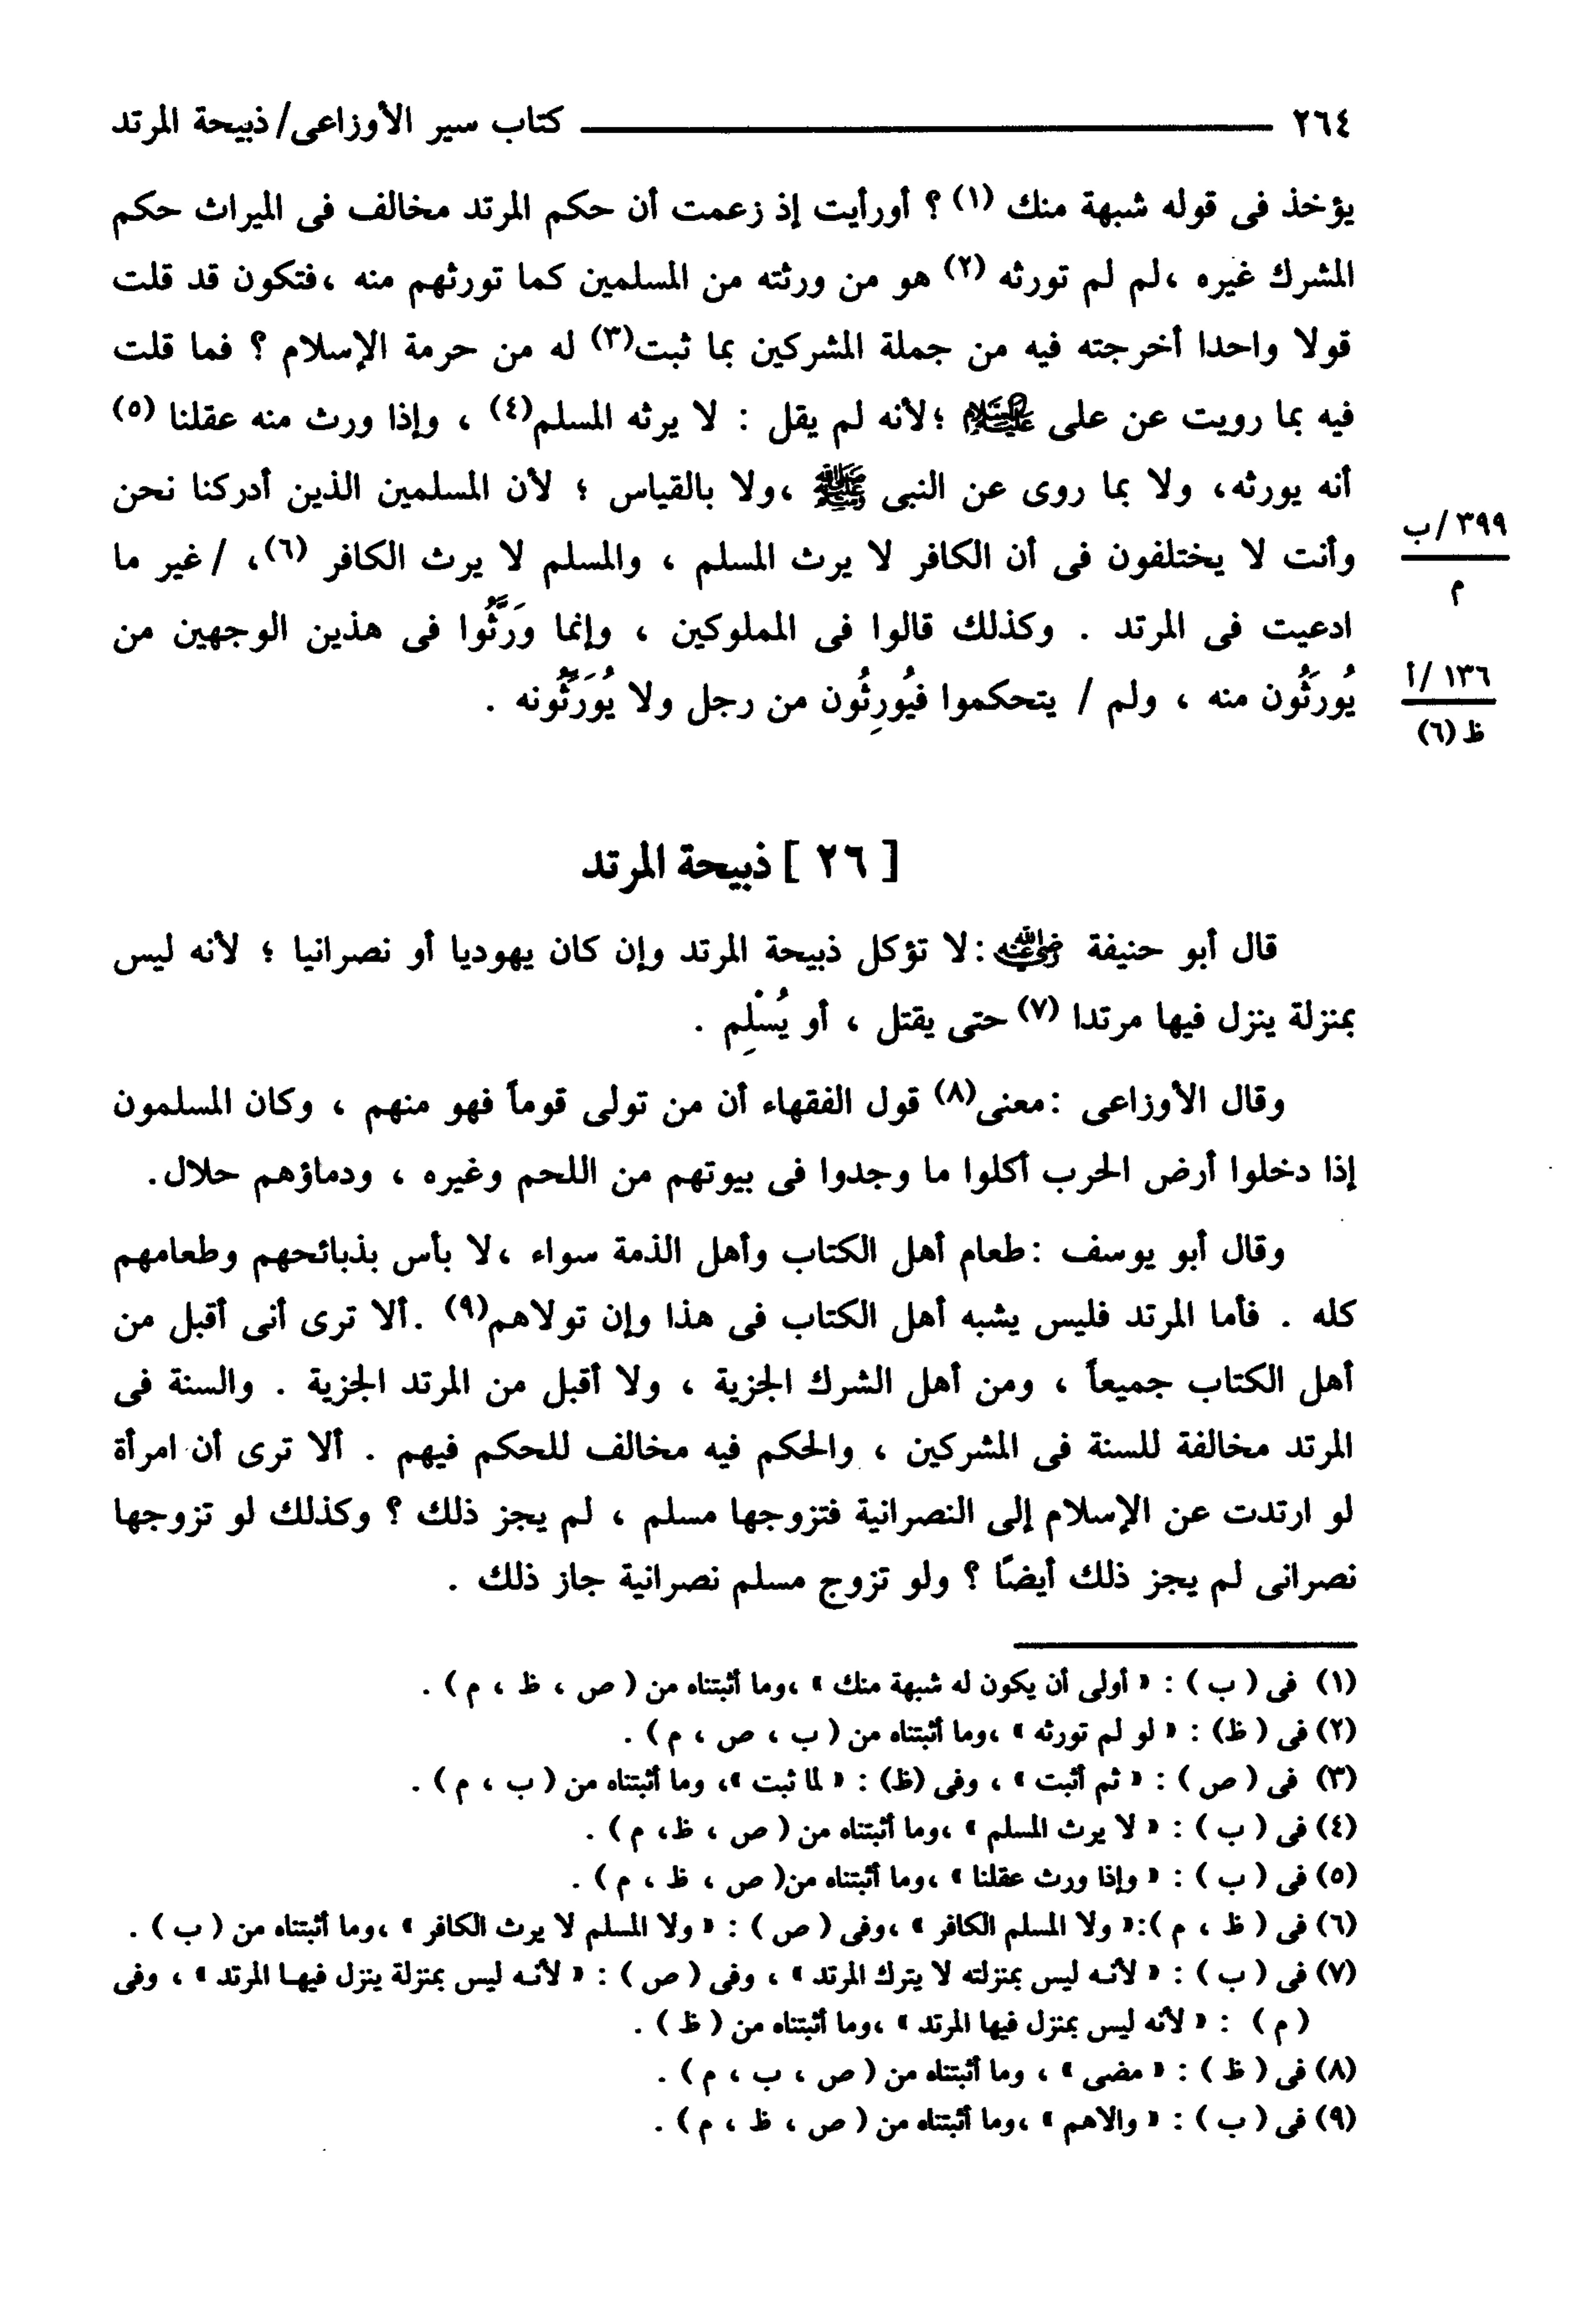 ٢٦٤ كتاب سير الأوزاعى/ ذبيحة المرتد
يؤخذ فى قوله شبهة منك (١) ؟ أورأيت إذ زعمت أن حكم المرتد مخالف فى الميراث حكم
المشرك غيره ،لم لم تورثه (٢) هو من ورثته من المسلمين كما تورثهم منه ،فتكون قد قلت
قولا واحدا أخرجته فيه من جملة المشركين بما ثبت(٣) له من حرمة الإسلام ؟ فما قلت
فيه بما رويت عن على عليه السلام ؛لأنه لم يقل : لا يرثه المسلم(٤) ، وإذا ورث منه عقلنا (٥)
أنه يورثه، ولا بما روى عن النبى ﷺ ،ولا بالقياس ؛ لأن المسلمين الذين أدركنا نحن
٣٩٩/ب
وأنت لا يختلفون فى أن الكافر لا يرث المسلم ، والمسلم لا يرث الكافر (٦)، /غير ما
م
ادعيت فى المرتد . وكذلك قالوا فى المملوكين ، وإنما وَرَّثُوا فى هذين الوجهين من
١٣٦/أ
يُورَثُون منه ، ولم / يتحكموا فيُورِثُون من رجل ولا يُوَرِّثُونه .
ظ (٦)
[ ٢٦ ] ذبيحة المرتد
قال أبو حنيفة رضي الله عنه :لا تؤكل ذبيحة المرتد وإن كان يهوديا أو نصرانيا ؛ لأنه ليس
بمنزلة ينزل فيها مرتدا (٧) حتى يقتل ، أو يُسْلِم .
وقال الأوزاعى :معنى(٨) قول الفقهاء أن من تولى قوماً فهو منهم ، وكان المسلمون
إذا دخلوا أرض الحرب أكلوا ما وجدوا فى بيوتهم من اللحم وغيره ، ودماؤهم حلال.
وقال أبو يوسف :طعام أهل الكتاب وأهل الذمة سواء ،لا بأس بذبائحهم وطعامهم
كله . فأما المرتد فليس يشبه أهل الكتاب فى هذا وإن تولاهم(٩) .ألا ترى أنى أقبل من
أهل الكتاب جميعاً ، ومن أهل الشرك الجزية ، ولا أقبل من المرتد الجزية . والسنة فى
المرتد مخالفة للسنة فى المشركين ، والحكم فيه مخالف للحكم فيهم . ألا ترى أن امرأة
لو ارتدت عن الإسلام إلى النصرانية فتزوجها مسلم ، لم يجز ذلك ؟ وكذلك لو تزوجها
نصرانى لم يجز ذلك أيضًا ؟ ولو تزوج مسلم نصرانية جاز ذلك .
(١) فى ( ب ) : « أولى أن يكون له شبهة منك » ،وما أثبتناه من ( ص ، ظ ، م ) .
(٢) فى ( ظ) : « لو لم تورثه » ،وما أثبتناه من ( ب ، ص ، م ) .
(٣) فى ( ص ) : « ثم أثبت » ، وفى (ظ) : « لما ثبت »، وما أثبتناه من ( ب ، م ) .
(٤) فى ( ب ) : « لا يرث المسلم » ،وما أثبتناه من ( ص ، ظ، م ) .
(٥) فى ( ب ) : « وإذا ورث عقلنا » ،وما أثبتناه من( ص ، ظ ، م ) .
(٦) فى ( ظ ، م ):« ولا المسلم الكافر » ،وفى ( ص ) : « ولا المسلم لا يرث الكافر » ،وما أثبتناه من ( ب ) .
(٧) فى ( ب ) : « لأنه ليس بمنزلته لا يترك المرتد » ، وفى ( ص ) : « لأنه ليس بمنزلة ينزل فيها المرتد » ، وفى
( م ) : « لأنه ليس بمنزل فيها المرتد » ،وما أثبتناه من ( ظ ) .
(٨) فى ( ظ ) : « مضى » ، وما أثبتناه من ( ص ، ب ، م ) .
(٩) فى ( ب ) : « والاهم » ،وما أثبتناه من ( ص ، ظ ، م ) .